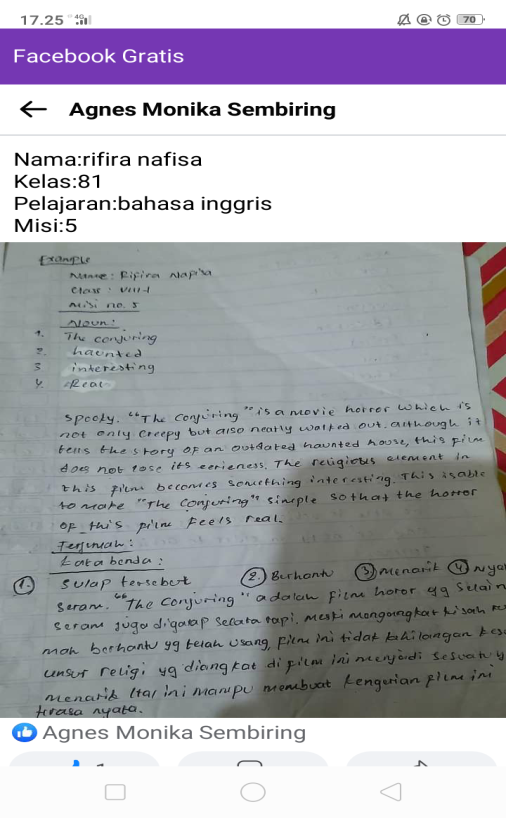 17.25 4G
70
Facebook Gratis
Agnes Monika Sembiring
Nama:rifira nafisa
Kelas:81
Pelajaran:bahasa inggris
Misi:5
Example
Name : Rifira Napisa
Class : VIII-1
Misi no. 5
Noun :
1. The conjuring
2. haunted
3 interesting
4. Real
Spooky. "The Conjuring" is a movie horror which is
not only creepy but also neatly walked out. although it
tells the story of an outdated haunted house, this film
does not lose its eerieness. The religious element in
this film becomes something interesting. This is able
to make "The Conjuring" simple so that the horror
of this film feels real.
Terjemah :
Kata benda :
1. Sulap tersebut 2. Berhantu 3 Menarik 4 Nya
Seram. "The Conjuring" adalah film horor yg Selain
Seram juga digarap secara rapi. Meski mengangkat kisah
mah berhantu yg telah usang, film ini tidak kehilangan kes
unsur religi yg diangkat di film ini menjadi sesuatu y
menarik Hal ini mampu membuat kengerian film ini
terasa nyata.
Agnes Monika Sembiring